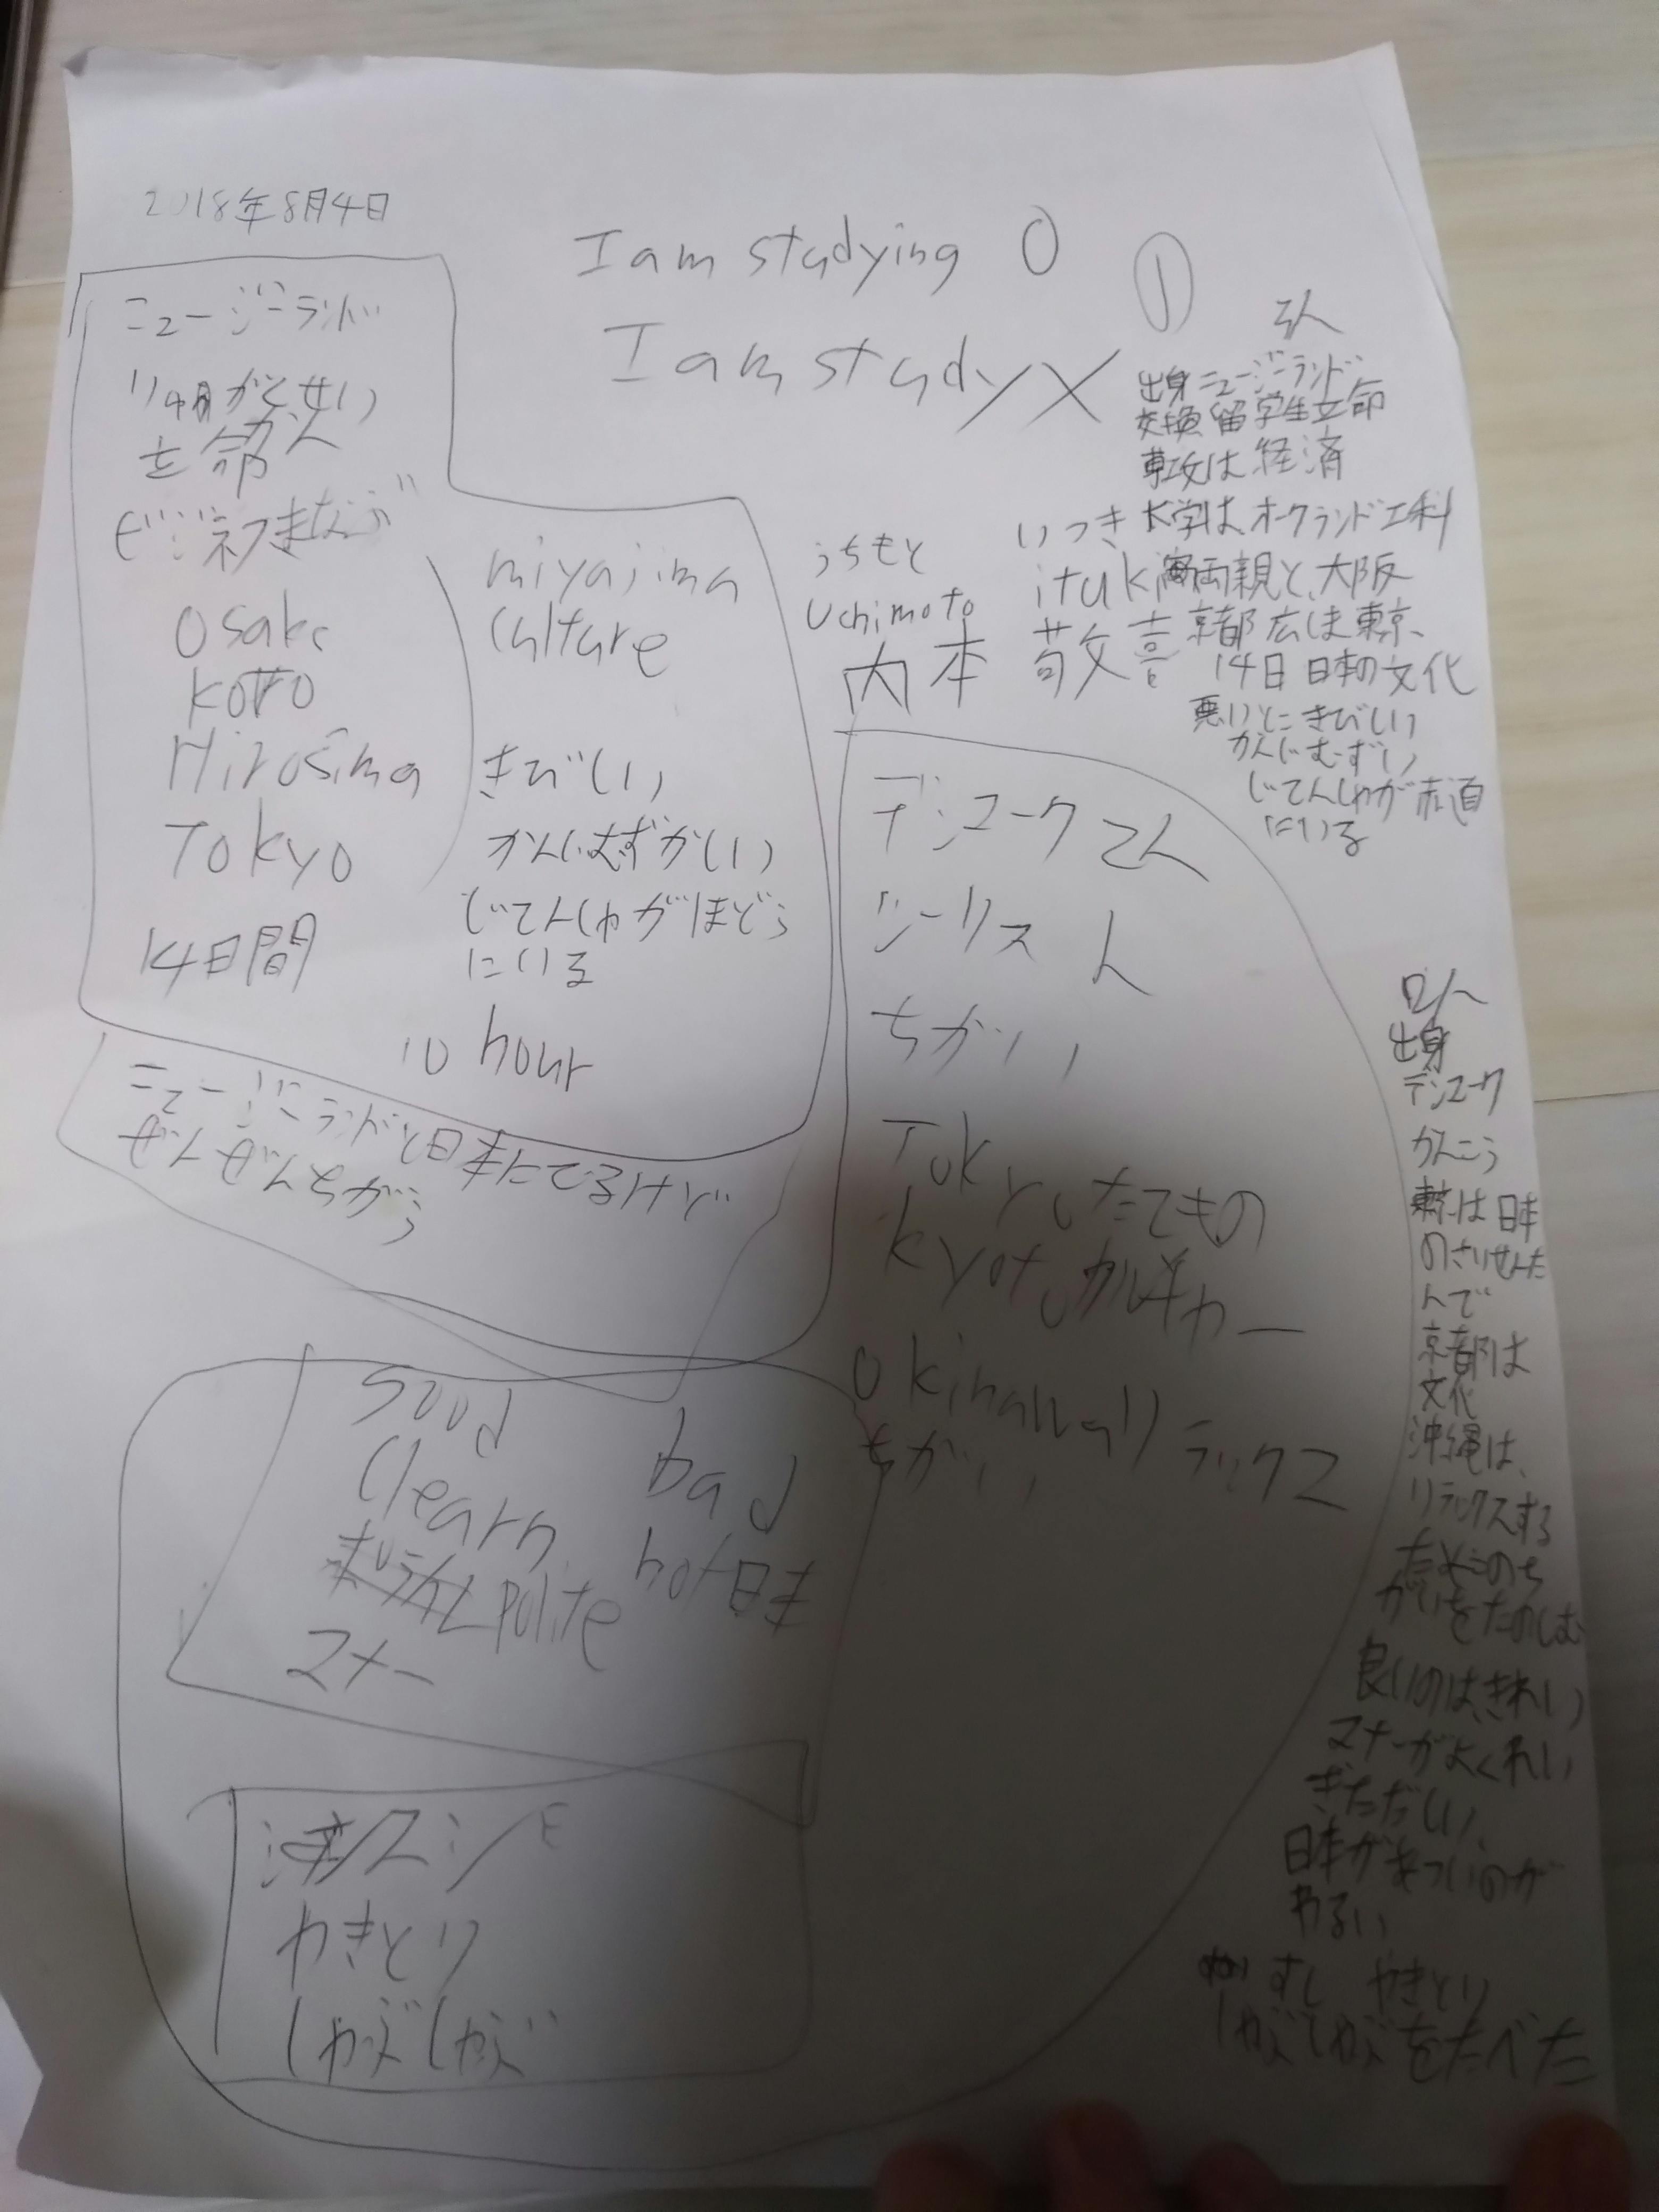 2018年8月4日
I am studying O
I am study X
①
ニュージーランド
ビジネスまなぶ
Osaka
Hirosima
Tokyo
14日間
miyajima
culture
きびしい
かんじむずかしい
じてんしゃがほどう
にいる
10 hour
ニュージーランドと日本にてるけど
ぜんぜんちがう
3人
出身ニュージーランド
交換留学生立命
専攻は経済
大学は、オークランド工科
両親と、大阪
京都広しま東京、
14日日本の文化
きびしい
かんじむずい
じてんしゃが赤道
にいる
うちもと
いつき
Uchimoto
ituki
内本 敬喜
2人
ちがい
Tokyoたてもの
kyotoカルチャー
okinawaリラックス
ちがい
good
bad
clearn
polite
hot日本
マナー
スシ
やきとり
しゃぶしゃぶ
2人
出身
かんこう
東京は日本
のさいせんた
んで
京都は
文化
沖縄は、
リラックスする
がいをたのしむ
良いのは、きれい
マナーがよくれい
ぎただしい、
日本があついのが
わるい
すし やきとり
しゃぶしゃぶをたべた